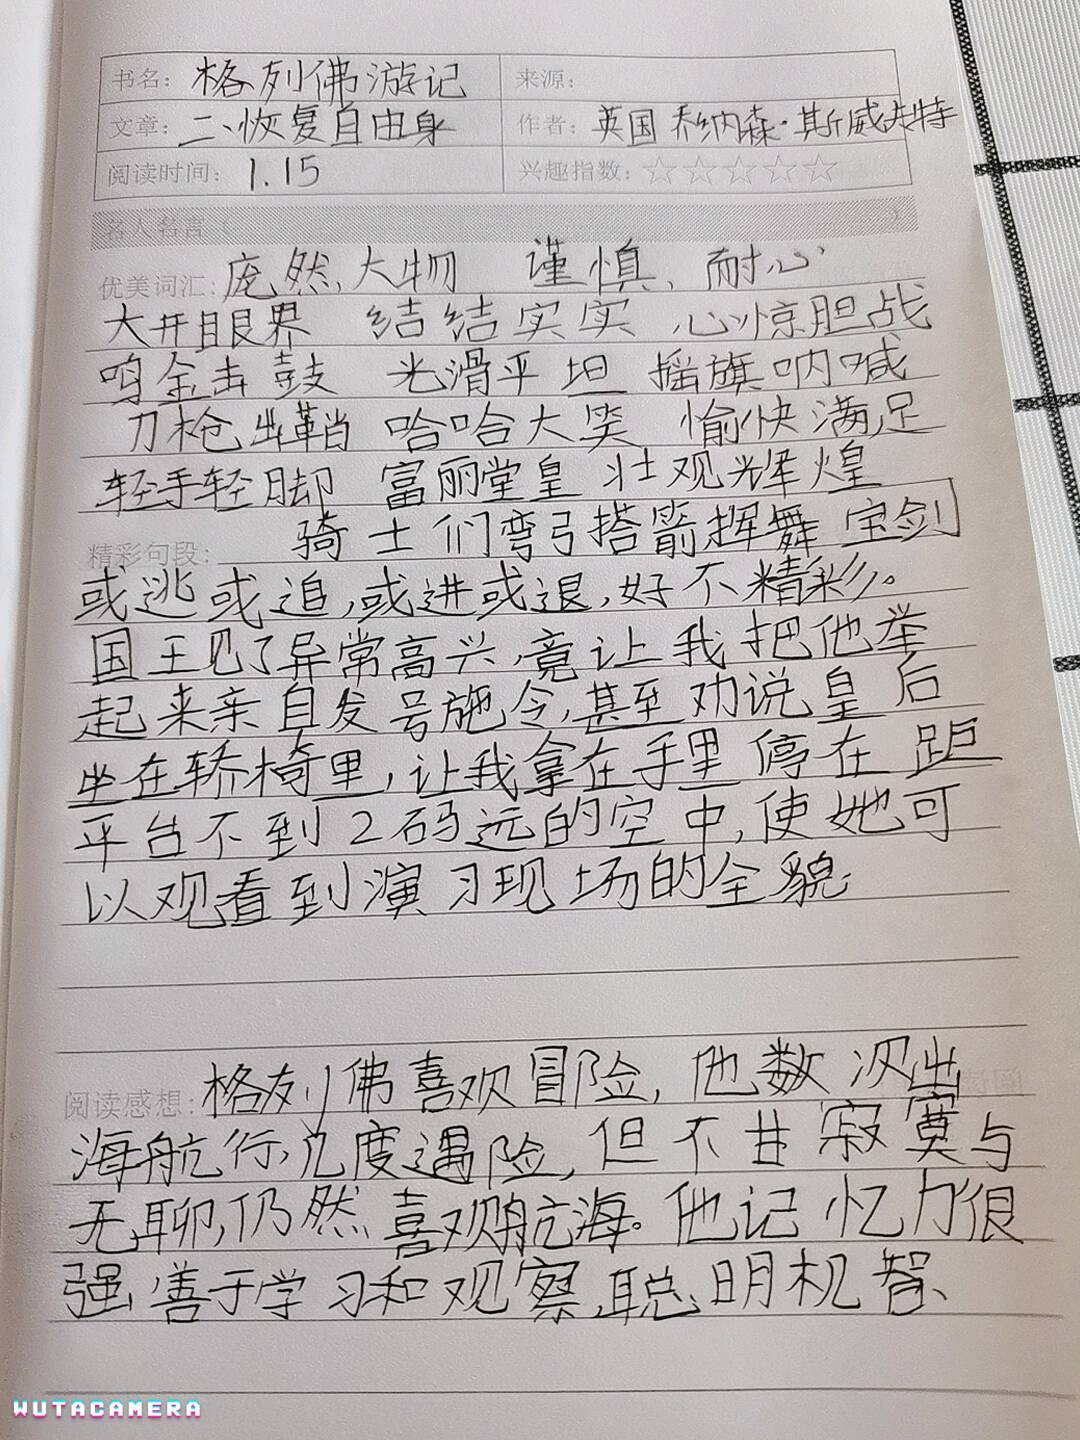 书名：格列佛游记 来源：
文章：二、恢复自由身 作者：英国 乔纳森·斯威夫特
阅读时间：1.15 兴趣指数：☆☆☆☆☆
名人名言
优美词汇：庞然大物 谨慎、耐心
大开眼界 结结实实 心惊胆战
鸣金击鼓 光滑平坦 摇旗呐喊
刀枪出鞘 哈哈大笑 愉快满足
轻手轻脚 富丽堂皇 壮观辉煌
精彩句段：骑士们弯弓搭箭挥舞宝剑
或逃或追，或进或退，好不精彩。
国王见了异常高兴，竟让我把他举
起来亲自发号施令，甚至劝说皇后
坐在轿椅里，让我拿在手里停在距
平台不到2码远的空中，使她可
以观看到演习现场的全貌.
阅读感想：格列佛喜欢冒险，他数次出
海航行，几度遇险，但不甘寂寞与
无聊，仍然喜欢航海。他记忆力很
强，善于学习和观察，聪明机智、
WUTACAMERA